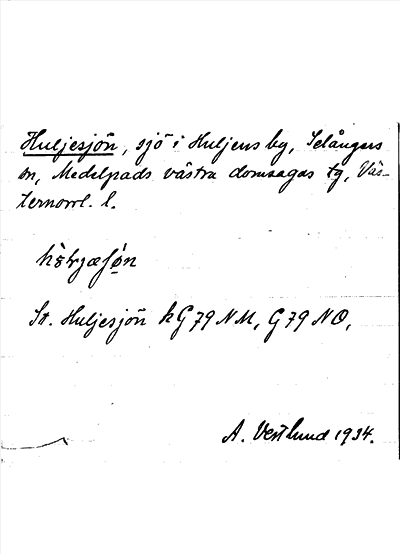 Huljesjön, sjö i Huljens by, Selångers
sn, Medelpads västra domsagas tg, Väs-
ternorrl. l.
St. Huljesjön k G 79 NM, G 79 NO,
A. Vestlund 1934.